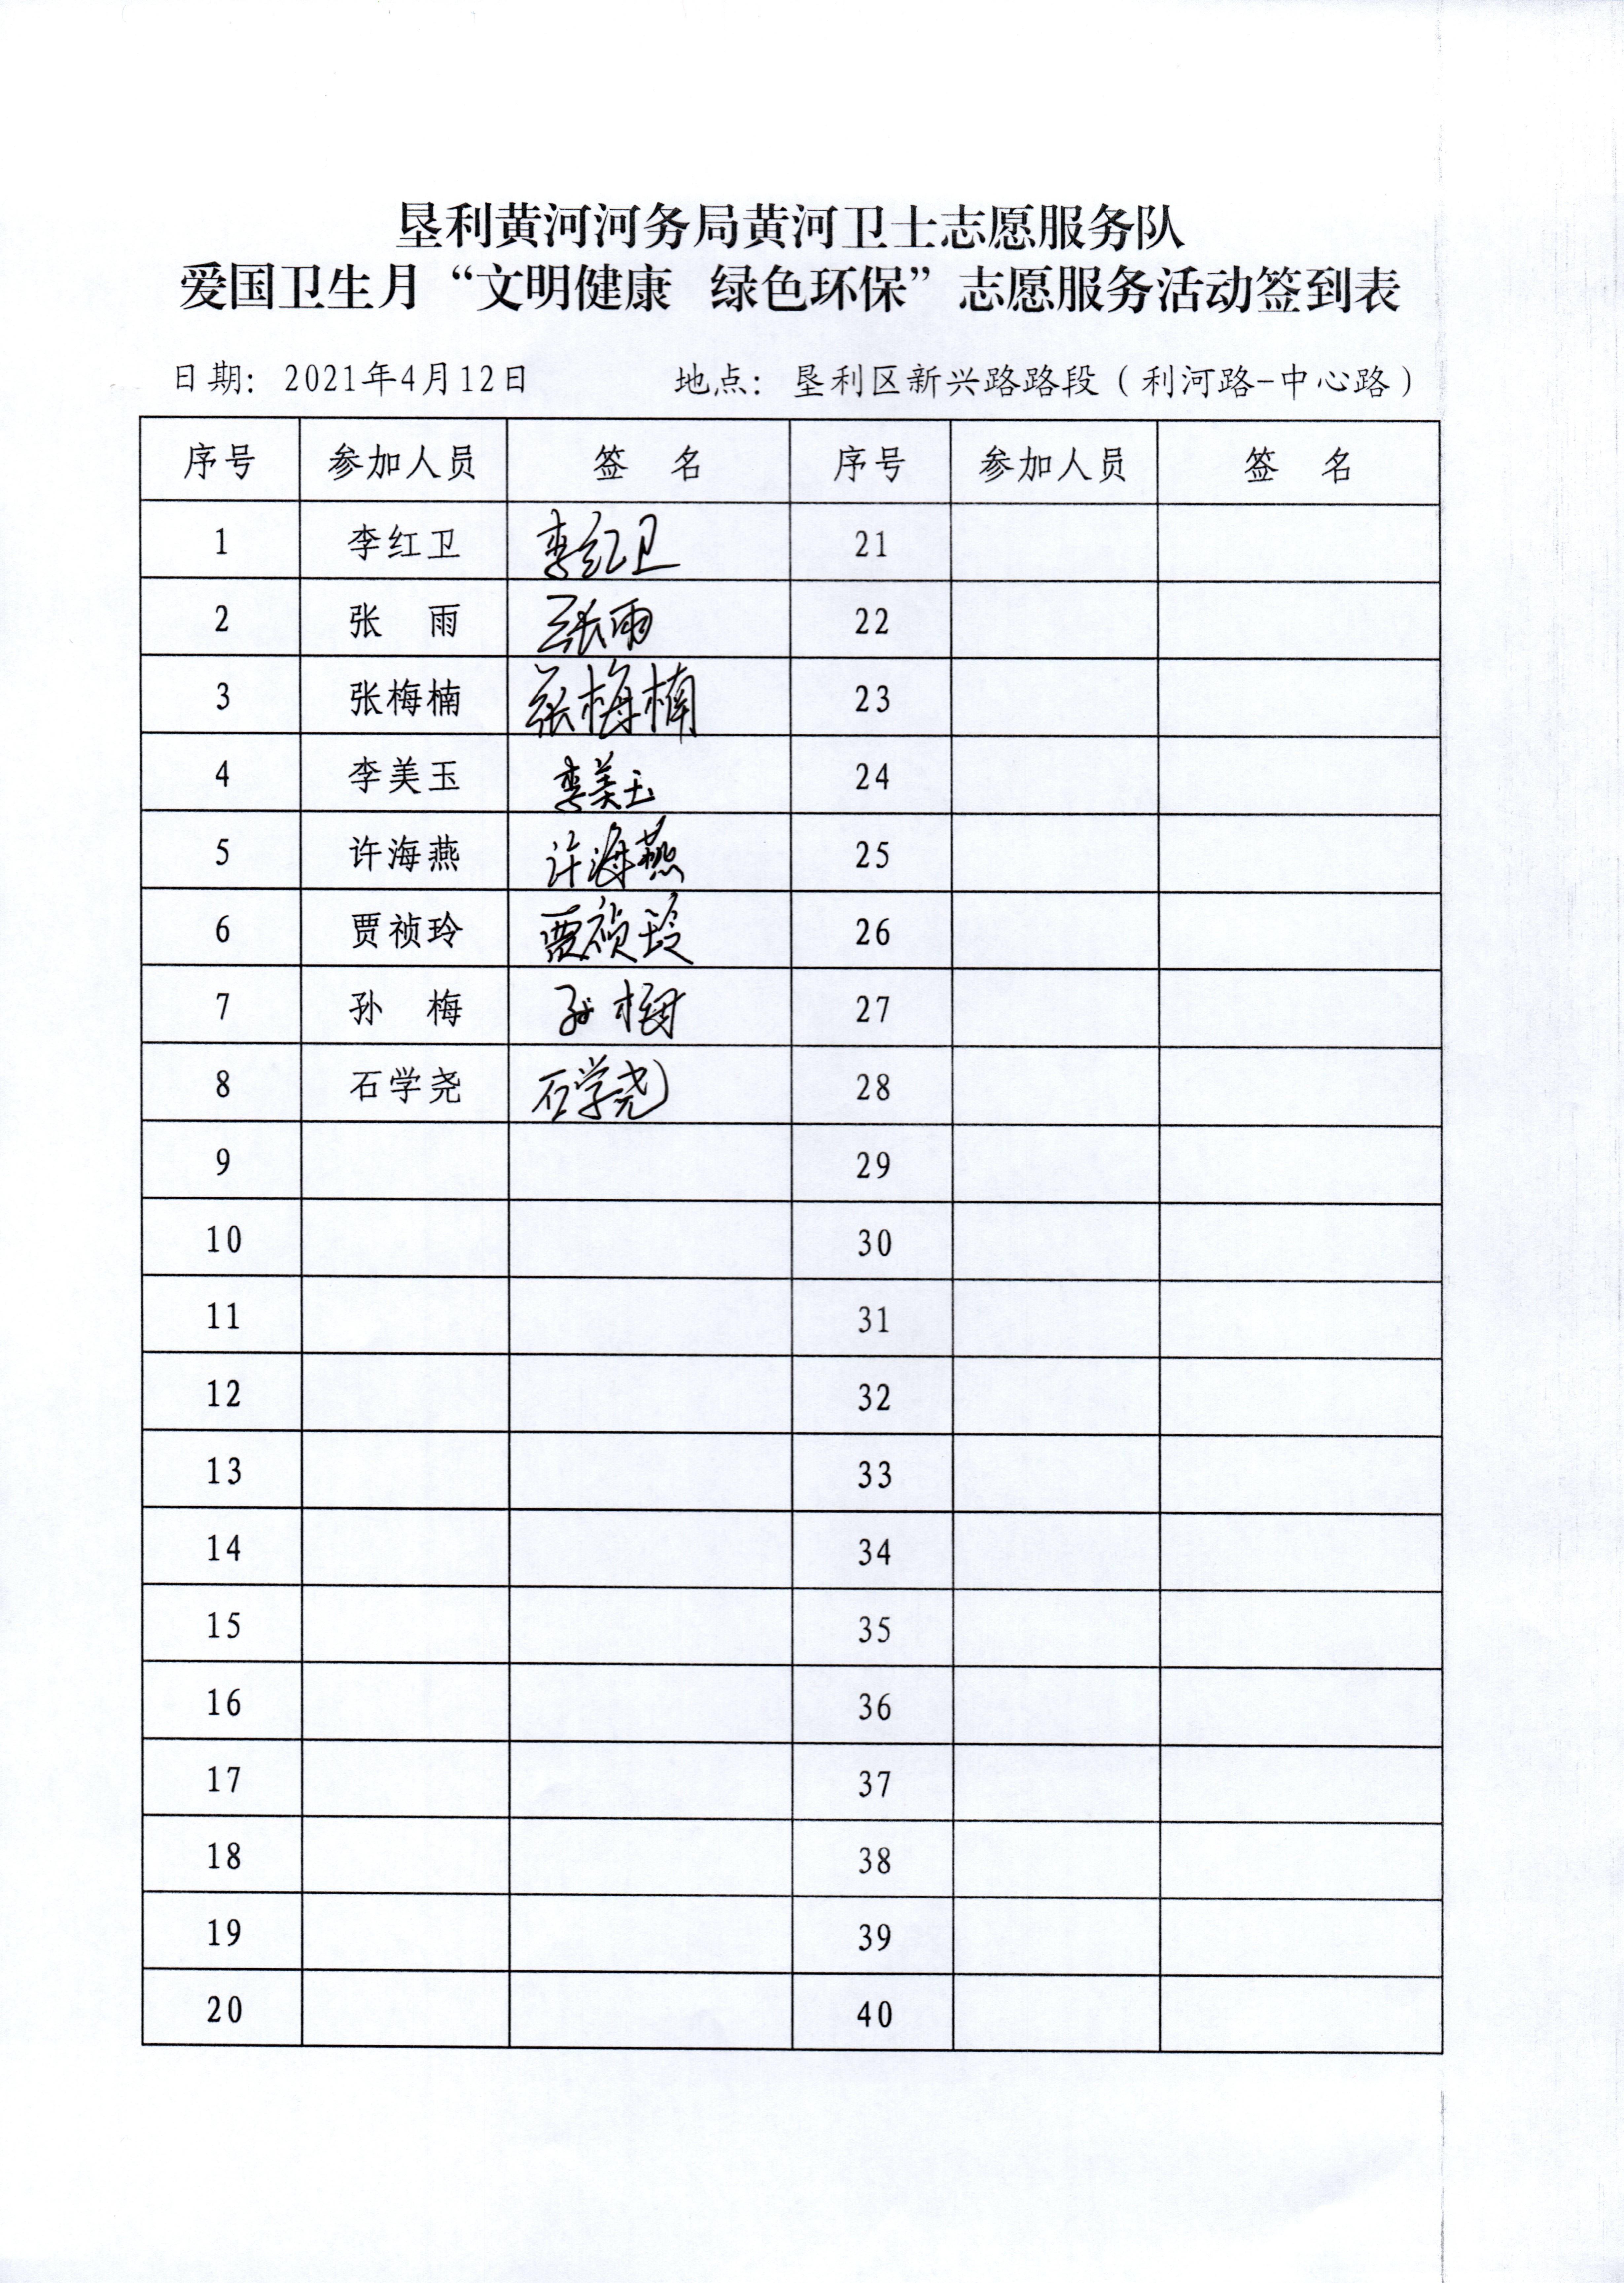 垦利黄河河务局黄河卫士志愿服务队
爱国卫生月“文明健康 绿色环保”志愿服务活动签到表
日期：2021年4月12日 地点：垦利区新兴路路段（利河路-中心路）
序号 参加人员 签 名 序号 参加人员 签 名
1 李红卫 李红卫 21
2 张 雨 张雨 22
3 张梅楠 张梅楠 23
4 李美玉 李美玉 24
5 许海燕 许海燕 25
6 贾祯玲 贾祯玲 26
7 孙 梅 孙梅 27
8 石学尧 石学尧 28
9 29
10 30
11 31
12 32
13 33
14 34
15 35
16 36
17 37
18 38
19 39
20 40